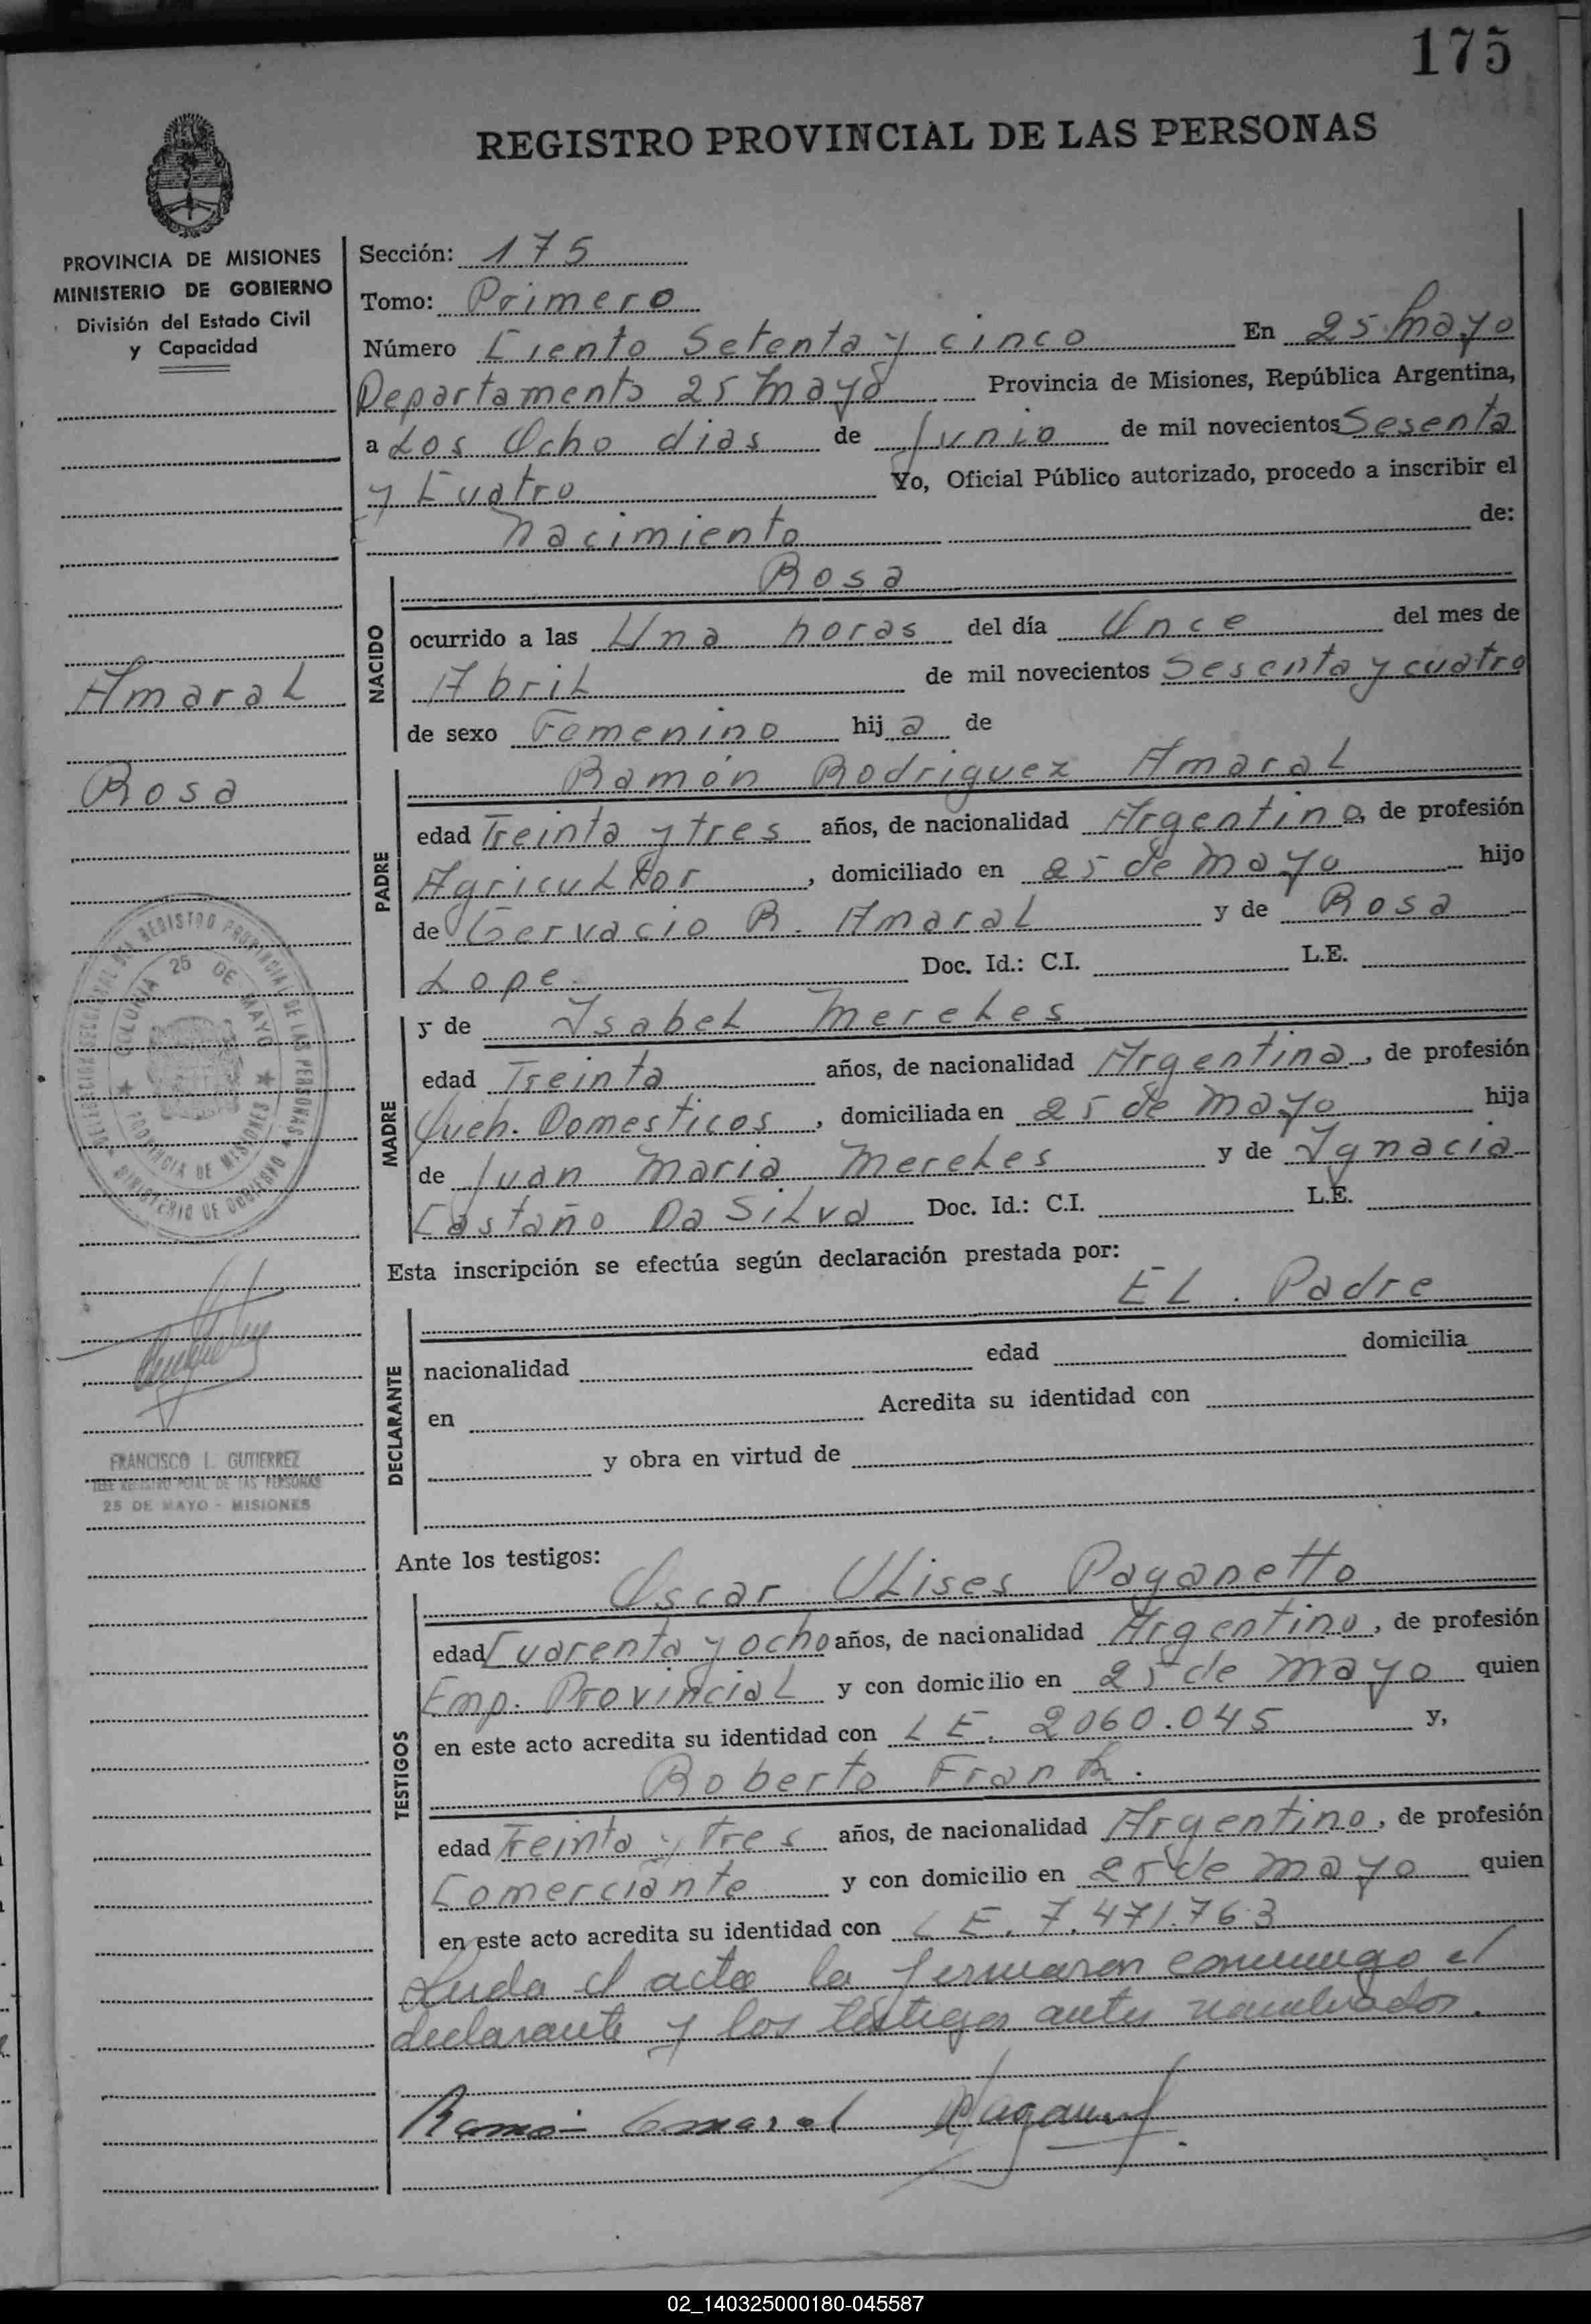 175
REGISTRO PROVINCIAL DE LAS PERSONAS
PROVINCIA DE MISIONES
MINISTERIO DE GOBIERNO
División del Estado Civil
y Capacidad
Amaral
Rosa
DELEGACION SECCIONAL DEL REGISTRO PROVINCIAL DE LAS PERSONAS
MINISTERIO DE GOBIERNO
COLONIA 25 DE MAYO
PROVINCIA DE MISIONES
FRANCISCO I. GUTIERREZ
JEFE REGISTRO PCIAL DE LAS PERSONAS
25 DE MAYO - MISIONES
Sección: 175
Tomo: Primero
Número Ciento Setenta y cinco En 25 Mayo
Departamento 25 Mayo Provincia de Misiones, República Argentina,
a Los Ocho dias de Junio de mil novecientos Sesenta
y Cuatro Yo, Oficial Público autorizado, procedo a inscribir el
Nacimiento de:
NACIDO
Rosa
ocurrido a las Una horas del día Once del mes de
Abril de mil novecientos Sesenta y cuatro
de sexo Femenino hija de
PADRE
Ramón Rodriguez Amaral
edad Treinta y tres años, de nacionalidad Argentino, de profesión
Agricultor, domiciliado en 25 de Mayo hijo
de Gervacio R. Amaral y de Rosa
Lope. Doc. Id.: C.I. L.E.
MADRE
y de Isabel Mereles
edad Treinta años, de nacionalidad Argentina, de profesión
Queh. Domesticos, domiciliada en 25 de Mayo hija
de Juan Maria Mereles y de Ignacia
Castaño Da Silva Doc. Id.: C.I. L.E.
Esta inscripción se efectúa según declaración prestada por:
DECLARANTE
EL. Padre
nacionalidad edad domicilia
en Acredita su identidad con
y obra en virtud de
Ante los testigos:
TESTIGOS
Oscar Ulises Paganetto
edad Cuarenta y ocho años, de nacionalidad Argentino, de profesión
Emp. Provincial y con domicilio en 25 de Mayo quien
en este acto acredita su identidad con L E. 2060.045 y,
Roberto Frank.
edad Treinta y tres años, de nacionalidad Argentino, de profesión
Comerciante y con domicilio en 25 de Mayo quien
en este acto acredita su identidad con L E. 7.471.763
Leida el acta la firmaron conmigo el
declarante y los testigos antes nombrados.
Ramón Amaral
02_140325000180-045587